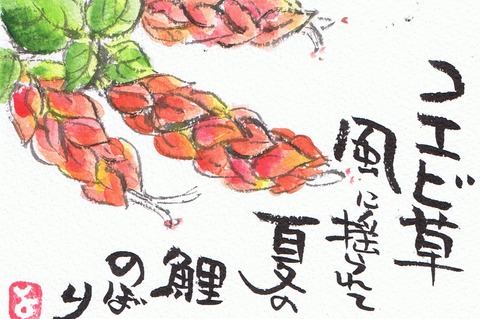 コエビ草
風に揺られて
夏の
鯉
のぼ
り